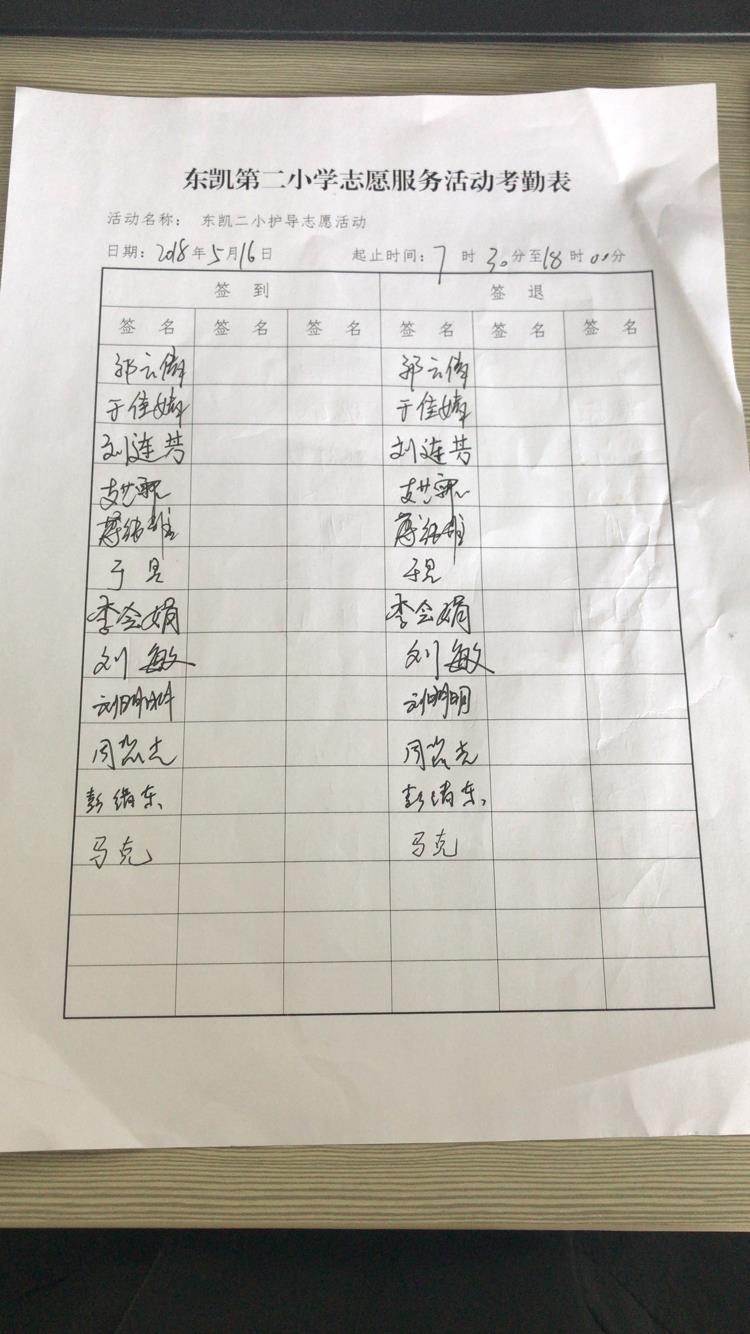 东凯第二小学志愿服务活动考勤表
活动名称: 东凯二小护导志愿活动
日期: 2018年5月16日 起止时间: 7时30分至18时00分
签 到 签 退
签 名 签 名 签 名 签 名 签 名 签 名
于佳婧 于佳婧
刘连芳 刘连芳
李会娟 李会娟
刘敏 刘敏
刘明明
彭绪东 彭绪东
马克 马克